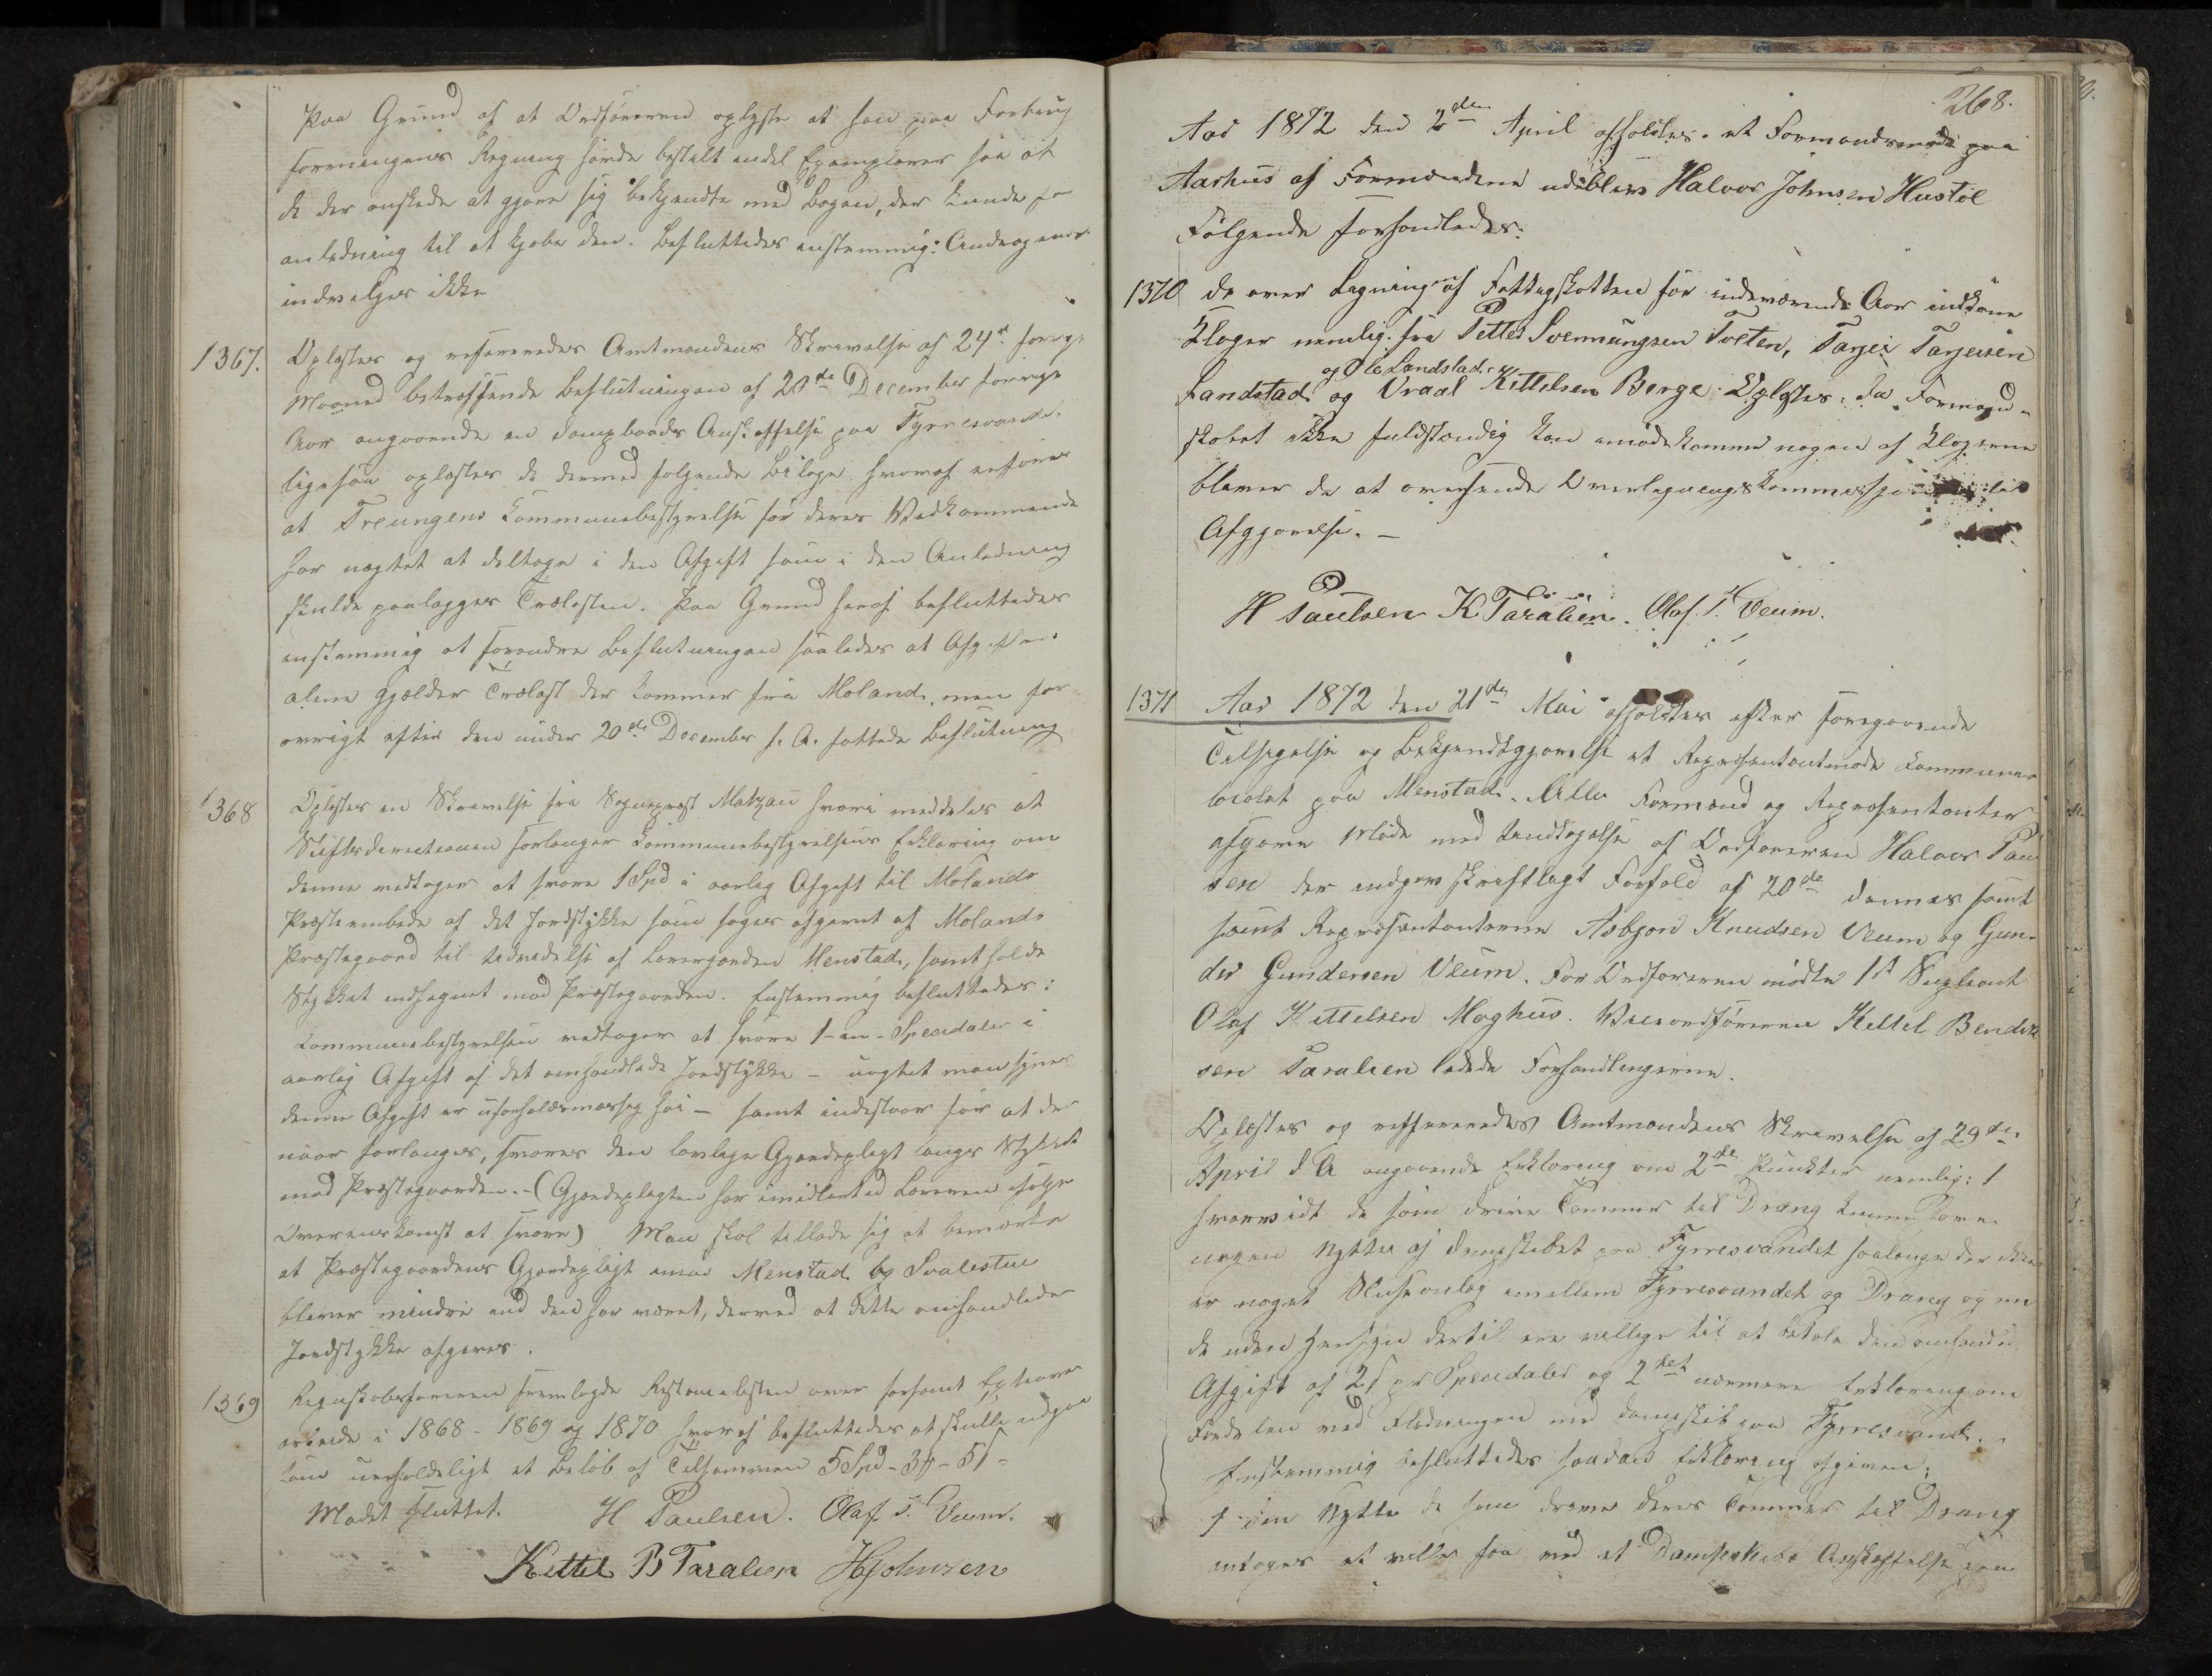 Paa Grund af at Ordføreren oplyste at han paa
foreningens Regning havde bestilt endel Exemplarer saa at
de der ønskede at gjøre sig bekjendte med Bogen, der kunde faa
anledning til at kjøbe den. Besluttedes enstemmig: Andragendet
indvilges ikke
1367. Oplæstes og refereredes Amtmandens Skrivelse af 24de forrige
Maaned betræffende Beslutningen af 20de December forrige
Aar angaaende en Dampbaads Anskaffelse paa Fyrresvand.
ligesaa oplæstes de dermed følgende Bilage hvoraf erfares
at Treungens Kommunebestyrelse for deres Vedkommende
har nægtet at deltage i den Afgift som i den Anledning
skulde paalægges Trælasten. Paa Grund heraf besluttedes
enstemmig at forandre Beslutningen saaledes at Afgiften
alene gjælder Trælast der kommer fra Moland, men for
øvrigt efter den under 20de December f. A. fattede Beslutning
1368 Oplæstes en Skrivelse fra Sogneprest Matzau hvori meddeles at
Stiftsdirectionen forlanger Kommunebestyrelsens Erklæring om
denne vedtager at svare 1 Spd i aarlig Afgift til Molands
Præsteembede af det Jordstykke som søges afgivet af Molands
Præstegaard til udvidelse af Lærerjorden Menstad, samt holde
Stykket indhegnet mod Præstegaarden. Enstemmig besluttedes:
Kommunebestyrelsen vedtager at svare 1-en-Speciedaler i
aarlig Afgift af det omhandlede Jordstykke - uagtet man synes
denne Afgift er uforholdsmæssig høi - samt indestaar for at der
naar forlanges, svares den lovlige Gjærdepligt langs Stykket
mod Præstegaarden. - (Gjærdepligten har imidlertid Læreren ifølge
Overenskomst at svare) Man skal tillade sig at bemærke
at Præstegaardens Gjærdepligt imod Menstad og Svalestue
bliver mindre end den har været, derved at dette omhandlede
Jordstykke afgives.
1369 Regnskabsføreren fremlagde Restancelisten over forsømt
arbeide i 1868 - 1869 og 1870 hvoraf besluttedes at skulle udgaa
som uerholdeligt et Beløb af Tilsammen 5 Spd - 3 - 5
Mødet sluttet. H Paulsen. Olaf T. Veum.
Kettil B Taralien HJohnsen
268.
Aar 1872 den 2den April afholdtes et Formandsmøde paa
Aarhus af Formændene udeblev Halvor Johnsen Hustøl
Følgende forhandledes:
1370 Da over Ligning af Fattigskatten for indeværende Aar indkom
Klager nemlig fra Petter Svennungsen Tveten, Tarjei Tarjeisen
og Ole Landstad.
Landstad og Vraal Kittilsen Berge. Oplæstes. Da Formand-
skabet ikke fuldstændig kan imødekomme nogen af Klagerne
bliver de at oversende Overligningskommissionen til
Afgjørelse. -
H Paulsen K Taralien. Olaf. T. Veum.
1371 Aar 1872 den 21de Mai afholdtes efter foregaaende
Tilsigelse og Bekjendtgjørelse et Repræsentantmøde Kommune-
lokalet paa Menstad. Alle Formænd og Repræsentanter
afgave Møde med Undtagelse af Ordføreren Halvor Paul
sen der indgav skriftligt Forfald af 20de dennes samt
samt Repræsentanterne Asbjørn Knudsen Veum og Gun-
der Gundersen Veum. For Ordføreren mødte 1st Supleant
Olaf Kettelsen Moghus. Viceordføreren Kettil Bendik
sen Taralien ledede Forhandlingerne.
Oplæstes og reffereredes Amtmandens Skrivelse af 29de
April d A angaaende Erklæring om 2de Punkter nemlig: 1
hvorvidt de som drive Tømmer til Drang kunne have
nogen Nytte af Dampskibet paa Fyrresvandet saalænge der ikke
er noget Sluseanlæg imellem Fyrresvandet og Drang og om
de uden Hensyn dertil ere villige til at betale den omhandlede
Afgift af 2 s pr Speciedaler og 2det nærmere Erklæring om
Fordelen ved Flødningen med Dampskib paa Fyrresvand.
Enstemmig besluttedes saadan Erklæring afgiven:
1 Den Nytte de som drive deres Tømmer til Drang
antages at ville faa ved et Dampskibs Anskaffelse paa